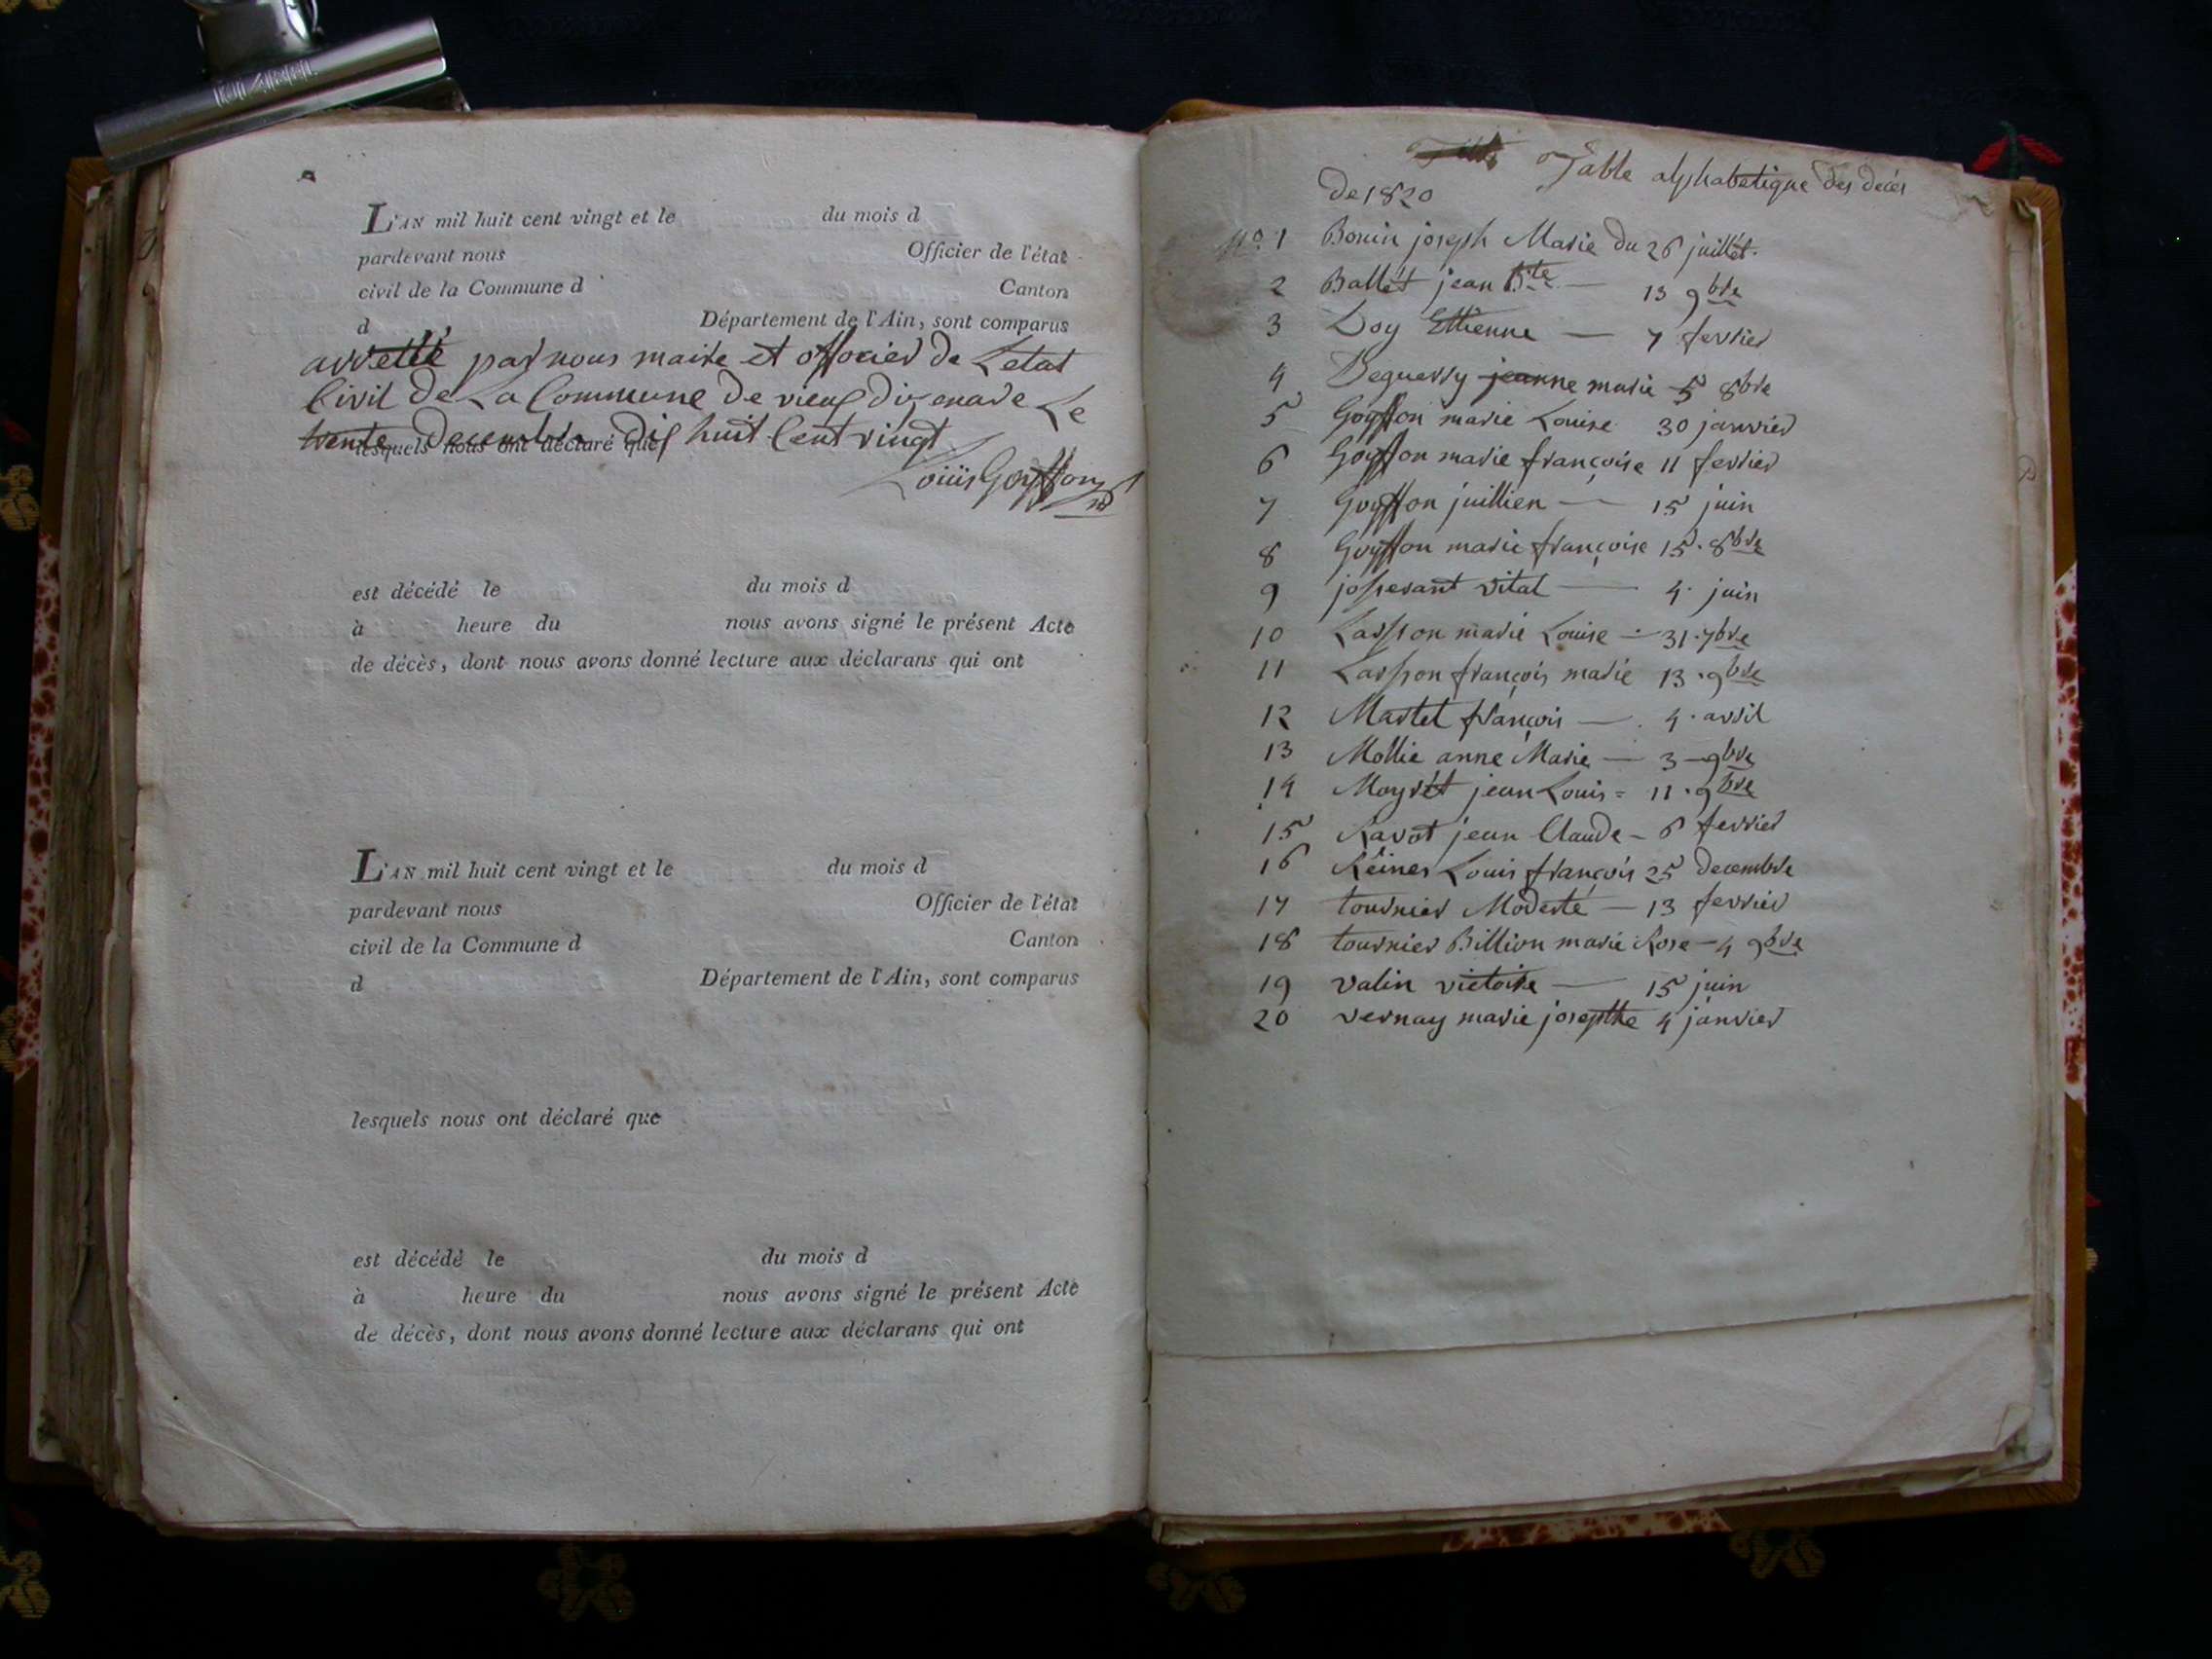 L'AN mil huit cent vingt et le du mois d
pardevant nous Officier de l'état
civil de la Commune d Canton
d Département de l'Ain, sont comparus
arretté par nous maire et officier de Letat
Civil de La Commune de vieuf dizenave Le
trente Decembre Dif huit Cent vingt
lesquels nous ont déclaré que
Loüis Goyffon
est décédé le du mois d
à heure du nous avons signé le présent Acte
de décès, dont nous avons donné lecture aux déclarans qui ont
L'AN mil huit cent vingt et le du mois d
pardevant nous Officier de l'état
civil de la Commune d Canton
d Département de l'Ain, sont comparus
lesquels nous ont déclaré que
est décédé le du mois d
à heure du nous avons signé le présent Acte
de décès, dont nous avons donné lecture aux déclarans qui ont
Table alphabetique des decés
de 1820
No. 1 Bonin joseph Marie du 26 juillet.
2 Ballet jean Bte — 13 9bre
3 Doy Ettienne — 7 fevrier
4 Deguerry jeanne marie 5 8bre
5 Goyffon marie Louise 30 janvier
6 Goyffon marie françoise 11 fevrier
7 Goyffon juillien — 15 juin
8 Goyffon marie françoise 15. 8bre
9 josserant vital — 4. juin
10 Lasson marie Louise — 31. 7bre
11 Lasson françois marie 13. 9bre
12 Martel françois — 4. avril
13 Mollie anne Marie — 3 — 9bre
14 Moyret jean Louis = 11. 9bre
15 Ravot jean Claude — 6 fevrier
16 Reines Louis françois 25 decembre
17 tournier Modeste — 13 fevrier
18 tournier Billion marie Rose — 4 9bre
19 valin victoire — 15 juin
20 vernay marie josepthe 4 janvier